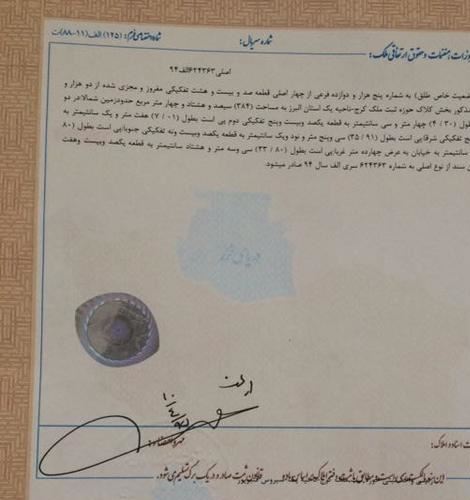 شماره سریال:
شناسه و امضای فرم: (۱۲۵) الف (۱۱-۸۸) ت
وزات، متعلقات و حقوق ارتفاقی ملک:
اصلی ۶۲۴۳۶۳الف۹۴
ضعیت خاص طلق) به شماره پنج هزار و دوازده فرعی از چهار اصلی قطعه صد و بیست و هشت تفکیکی مفروز و مجزی شده از دو هزار و
ذکور بخش کلاک حوزه ثبت ملک کرج-ناحیه یک استان البرز به مساحت (۳۸۴) سیصد و هشتاد و چهار متر مربع حدودزمین شمالا:در دو
طول (۳۰ / ۴) چهار متر و سی سانتیمتر به قطعه یکصد وبیست وپنج تفکیکی دوم پی است بطول (۰۱ / ۷) هفت متر و یک سانتیمتر به
ج تفکیکی شرقا:پی است بطول (۹۱ / ۳۵) سی وپنج متر و نود ویک سانتیمتر به قطعه یکصد وبیست ونه تفکیکی جنوبا:پی است بطول (۸۰
سانتیمتر به خیابان به عرض چهارده متر غربا:پی است بطول (۸۰ / ۳۳) سی وسه متر و هشتاد سانتیمتر به قطعه یکصد وبیست وهفت
ن سند از نوع اصلی به شماره ۶۲۴۳۶۳ سری الف سال ۹۴ صادر میشود.
دریای خزر
ت اسناد و املاک:
مهر و امضاء
قانون ثبت صادر و در یک برگ تسلیم می شود.